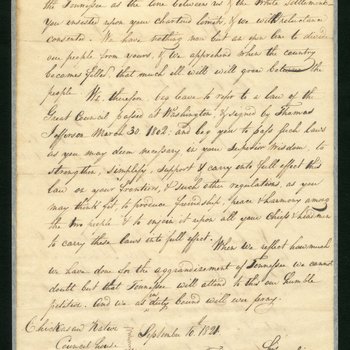 the Tennessee as the line between us & the White settlement
You insisted upon your Chartered limits, & we with reluctance
consented. We have nothing now but an line to divide
our people from yours, & we apprehend when the country
becomes settled, that much ill will will grow between the
people. We therefore beg leave to refer to a law of the
Great Council passed at Washington & signed by Thomas
Jefferson, March 30 1802. and beg you to pass such laws
as you may deem necessary in your Superior Wisdom, to
strengthen, simplify, support & carry into full effect this
law on your frontiers, & such other regulations, as you
may think fit to produce friendship, peace & harmony among
the two people & to enjoin it upon all your Chiefs & head men
to carry these laws into full effect.
When we reflect how much
we have done for the aggrandizement of Tennessee we cannot
doubt but that Tennessee will attend to this our humble
petition. And we as in duty bound will ever pray.
Chickasaw Nation
Council House
September 10th 1821.